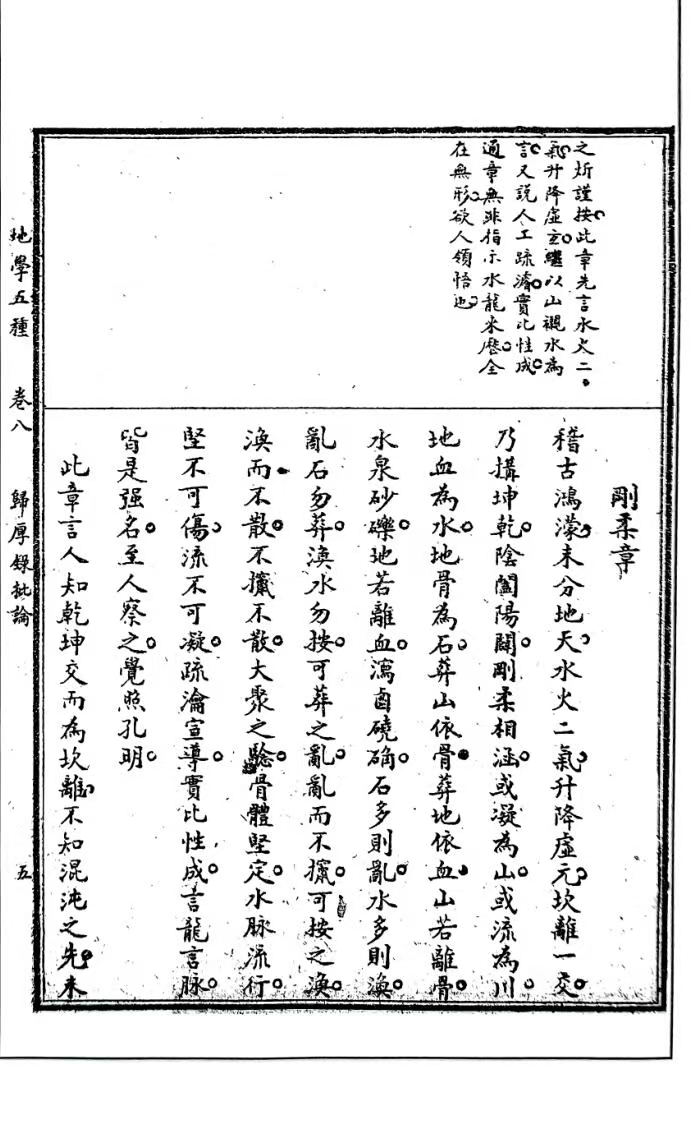 之炘謹按此章先言水火二
氣升降虛玄繼以山襯水為
言又說人工疏濬實比性成
通章無非指示水龍來歷全
在無形欲人領悟也
剛柔章
稽古鴻濛未分地天水火二氣升降虛元坎離一交
乃搆坤乾陰闔陽闢剛柔相涵或凝為山或流為川
地血為水地骨為石葬山依骨葬地依血山若離骨
水泉砂礫地若離血瀉鹵磽确石多則亂水多則渙
亂石勿葬渙水勿按可葬之亂亂而不攛可按之渙
渙而不散不攛不散大聚之驗骨體堅定水脉流行
堅不可傷流不可凝疏瀹宣導實比性成言龍言脉
皆是强名至人察之覺照孔明
此章言人知乾坤交而為坎離不知混沌之先未
地學五種
卷八
歸厚錄批論
五